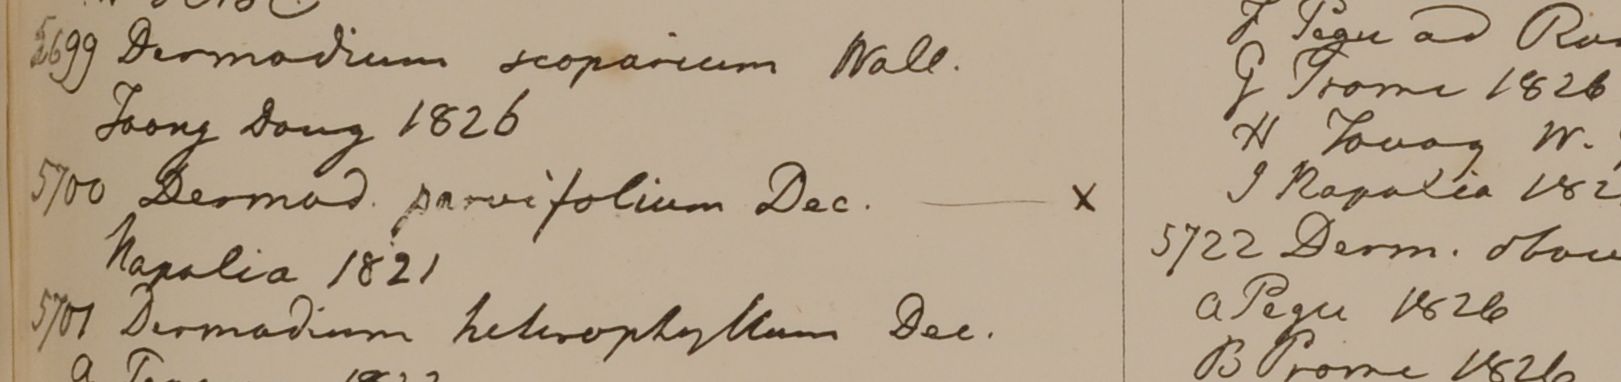 5699 Dermodium scoparium Wall.
Toong Dong 1826
5700 Desmod. parvifolium Dec. x
Napalia 1821
5701 Dermodium heterophyllum Dec.
1822
F Pegu ad
G Prome 1826
H W.
I Napalia 182
5722 Derm.
a Pegu 1826
B Prome 1826